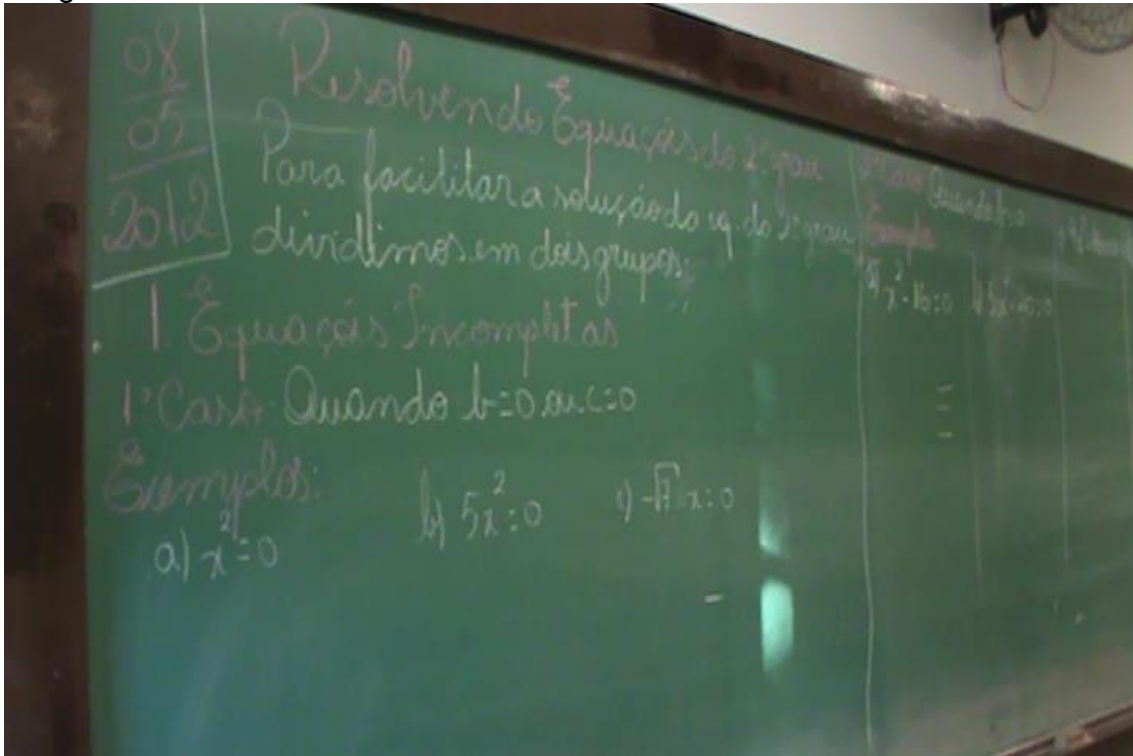 08
05
2012
Resolvendo Equações do 2º grau
Para facilitar a solução do eq. do 2º grau
dividimos em dois grupos:
1 Equações Incompletas
1º Caso Quando b=0 ou c=0
Exemplos:
a) x²=0
b) 5x²=0
x=0
Caso Quando
Exemplos
a) x²-16=0